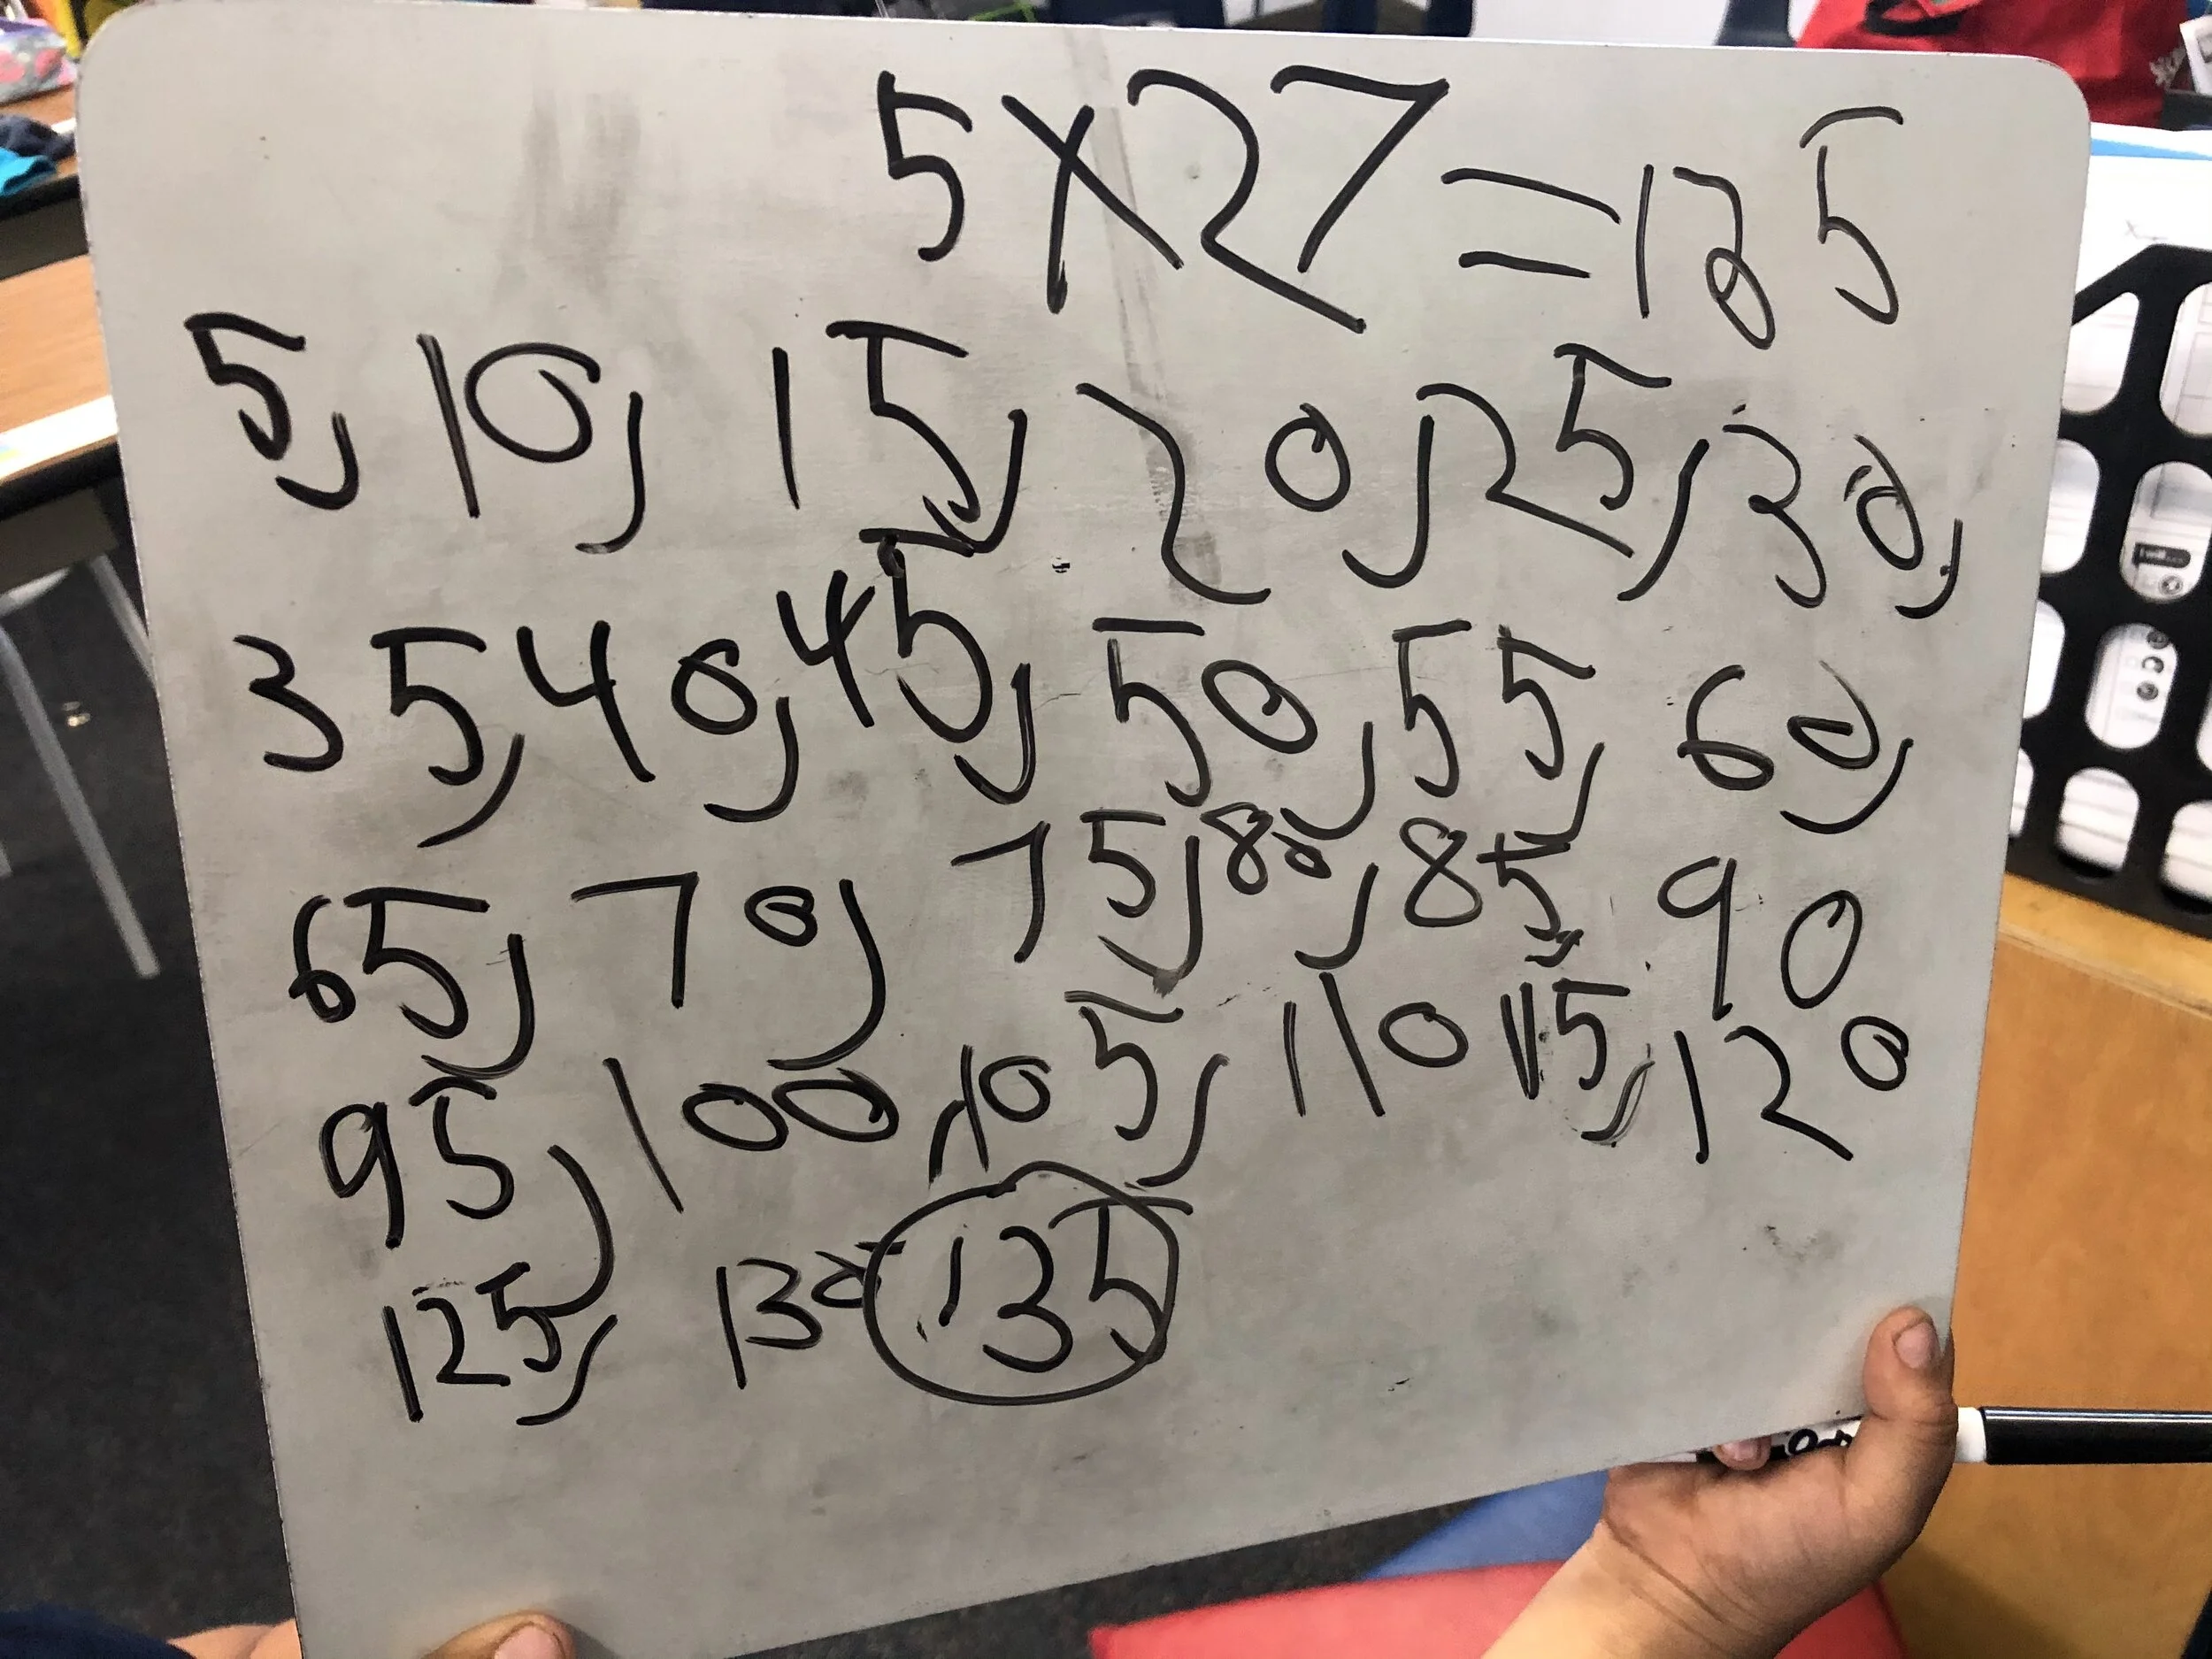 5x27=135
5, 10, 15, 20, 25, 30,
35, 40, 45, 50, 55, 60,
65, 70, 75, 80, 85, 90
95, 100, 105, 110 115, 120
125, 130 135